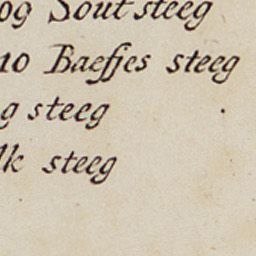 09 Sout steeg
10 Baefjes steeg
g steeg
lk steeg